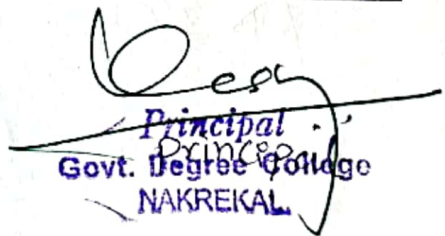 Principal
Principal
Govt. Degree College
NAKREKAL